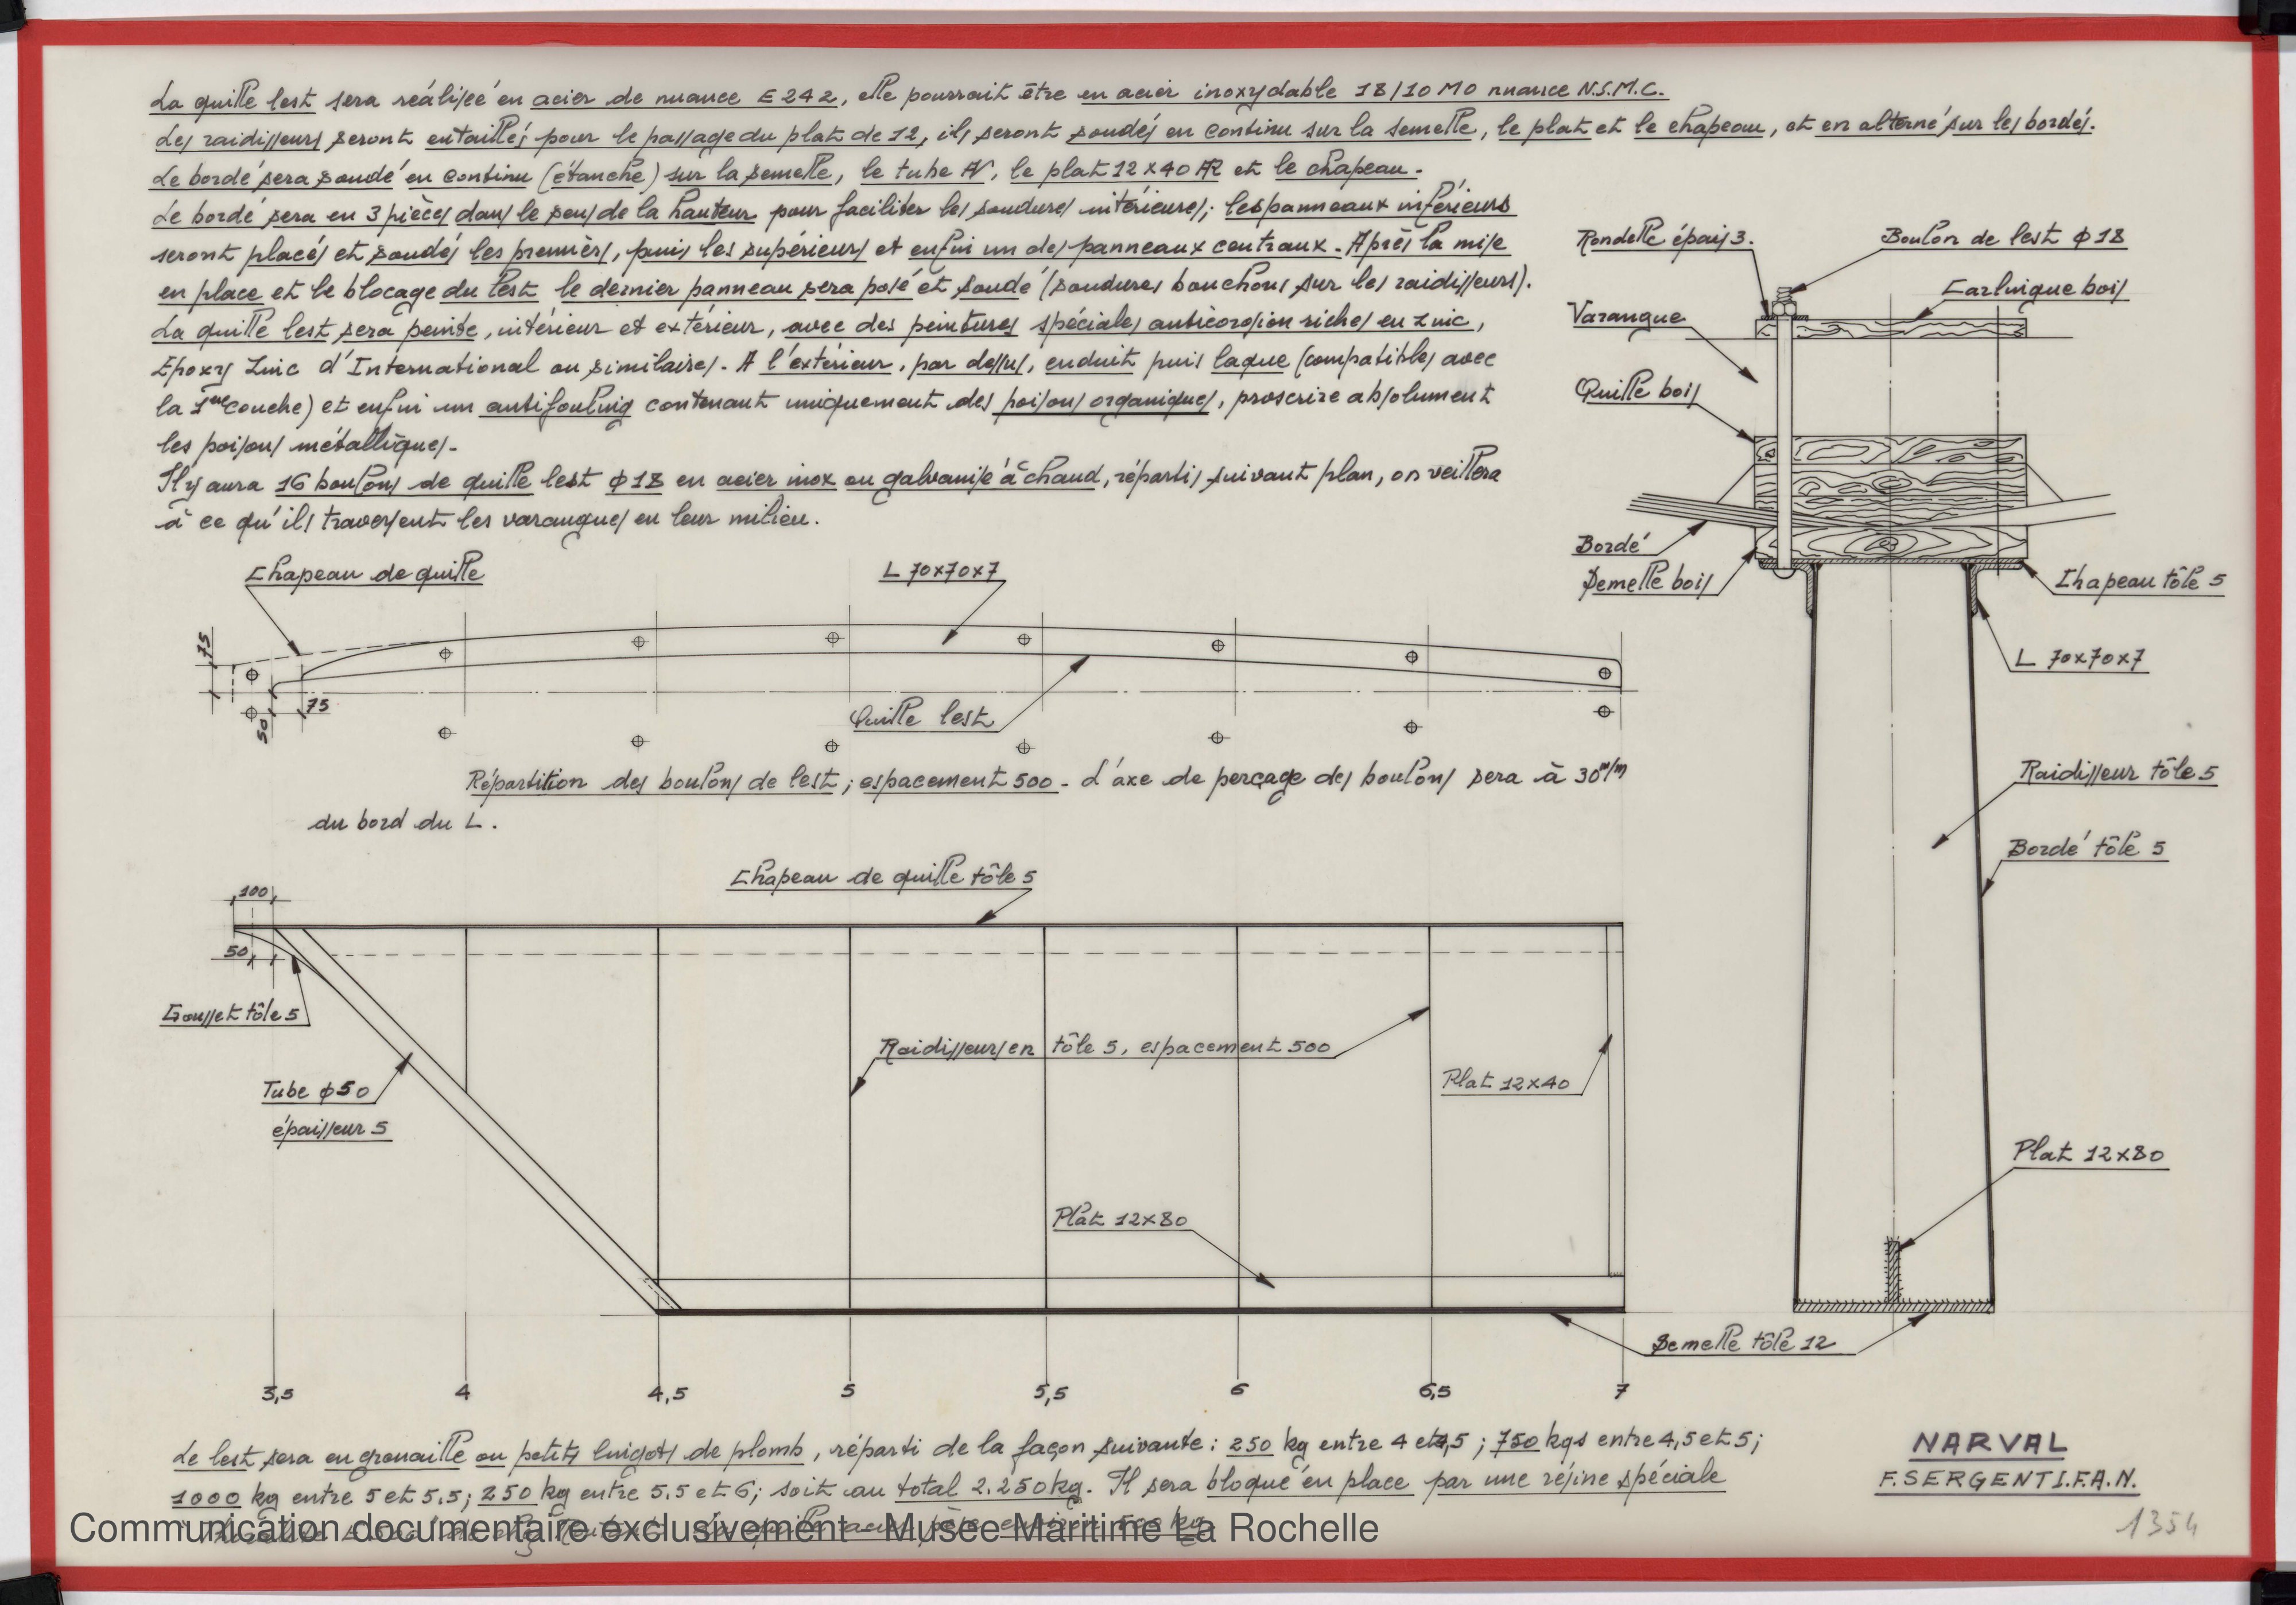 La quille lest sera réalisée en acier de nuance E 24 2, elle pourrait être en acier inoxydable 18/10 MO nuance N.S.M.C.
Les raidisseurs seront entaillés pour le passage du plat de 12, ils seront soudés en continu sur la semelle, le plat et le chapeau, et en alterné sur les bordés.
Le bordé sera soudé en continu (étanche) sur la semelle, le tube AV, le plat 12x40 AR et le chapeau.
Le bordé sera en 3 pièces dans le sens de la hauteur pour faciliter les soudures intérieures; les panneaux inférieurs
seront placés et soudés les premiers, puis les supérieurs et enfin un des panneaux centraux. Après la mise
en place et le blocage du lest le dernier panneau sera posé et soudé (soudures bouchons sur les raidisseurs).
La quille lest sera peinte, intérieur et extérieur, avec des peintures spéciales anticorosion riches en zinc,
Epoxy Zinc d'International ou similaires. A l'extérieur, par dessus, enduit puis laque (compatibles avec
la 1ère couche) et enfin un antifouling contenant uniquement des poisons organiques, proscrire absolument
les poisons métalliques.
Il y aura 16 boulons de quille lest φ18 en acier inox ou galvanisé à chaud, répartis suivant plan, on veillera
à ce qu'ils traversent les varangues en leur milieu.
Rondelle épais 3.
Boulon de lest φ 18
Carlingue bois
Varangue
Quille bois
Bordé
Semelle bois
Chapeau tôle 5
L 70x70x7
Raidisseur tôle 5
Bordé tôle 5
Plat 12x80
Chapeau de quille
L 70x70x7
75
75
50
Quille lest
Répartition des boulons de lest; espacement 500 - L'axe de perçage des boulons sera à 30 m/m
du bord du L.
Chapeau de quille tôle 5
100
50
Gousset tôle 5
Tube φ50
épaisseur 5
Raidisseurs en tôle 5, espacement 500
Plat 12x40
Plat 12x80
Semelle tôle 12
3,5 4 4,5 5 5,5 6 6,5 7
Le lest sera en grenaille ou petits lingots de plomb, réparti de la façon suivante : 250 kg entre 4 et 4,5 ; 750 kgs entre 4,5 et 5 ;
1000 kg entre 5 et 5.5 ; 250 kg entre 5.5 et 6 ; soit au total 2.250 kg. Il sera bloqué en place par une résine spéciale
NARVAL
F. SERGENT I.F.A.N.
1354
Communication documentaire exclusivement - Musée Maritime La Rochelle